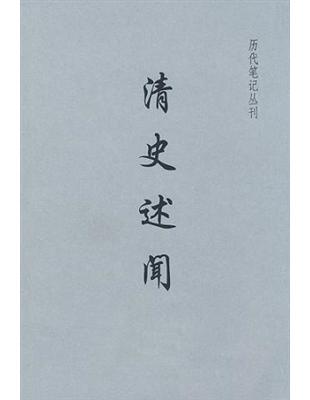 历代笔记丛刊
清史述聞